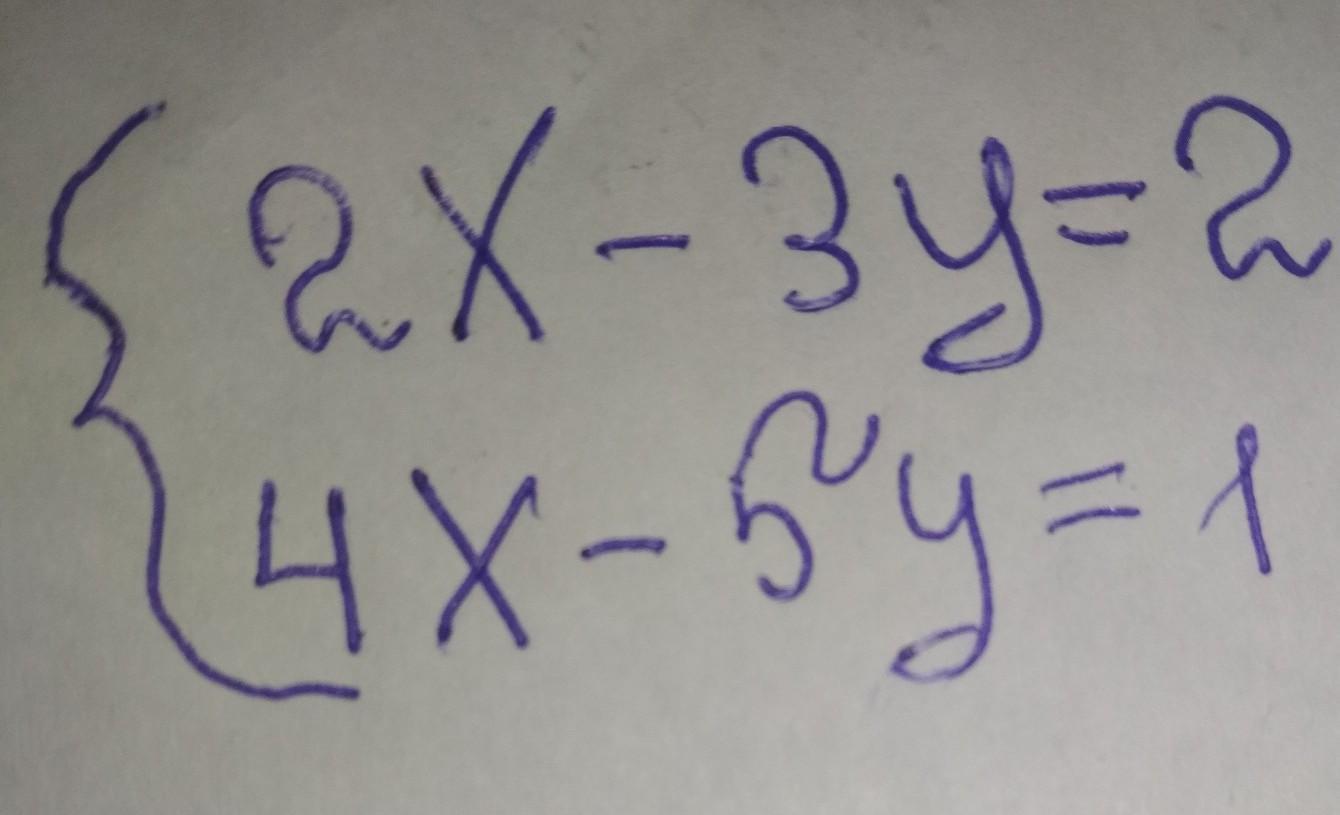 2x - 3y = 2
4x - 5y = 1